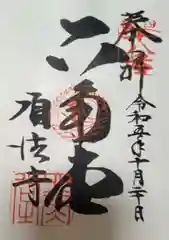 奉拝
令和五年十月二十日
六角堂
頂法寺